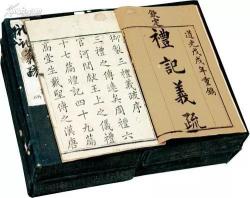 道光戊戌年重鐫
欽定
禮記義疏
御製三禮義疏序
三禮之傳遠矣周禮六
官河間獻王上之儀禮
十七篇禮記四十九篇
高堂生戴聖傳之漢唐